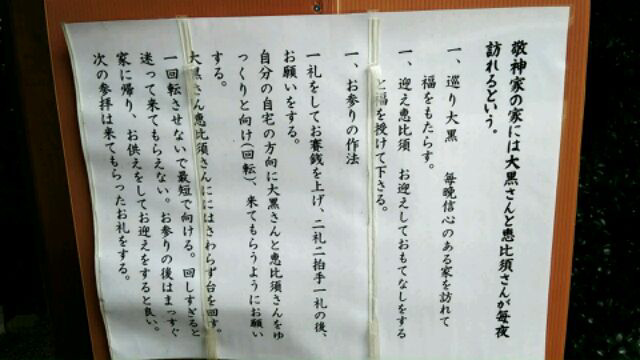 敬神家の家には大黒さんと恵比須さんが毎夜
訪れるという。
一、巡り大黒　毎晩信心のある家を訪れて
福をもたらす。
一、迎え恵比須　お迎えしておもてなしをする
と福を授けて下さる。
一、お参りの作法
一礼をしてお賽銭を上げ、二礼二拍手一礼の後、
お願いをする。
自分の自宅の方向に大黒さんと恵比須さんをゆ
っくりと向け(回転)、来てもらうようにお願い
する。
大黒さん恵比須さんにはさわらず台を回す。
一回転させないで最短で向ける。回しすぎると
迷って来てもらえない。お参りの後はまっすぐ
家に帰り、お供えをしてお迎えをすると良い。
次の参拝は来てもらったお礼をする。